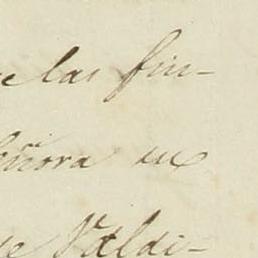 e las fin-
eñora en
de Valdi-